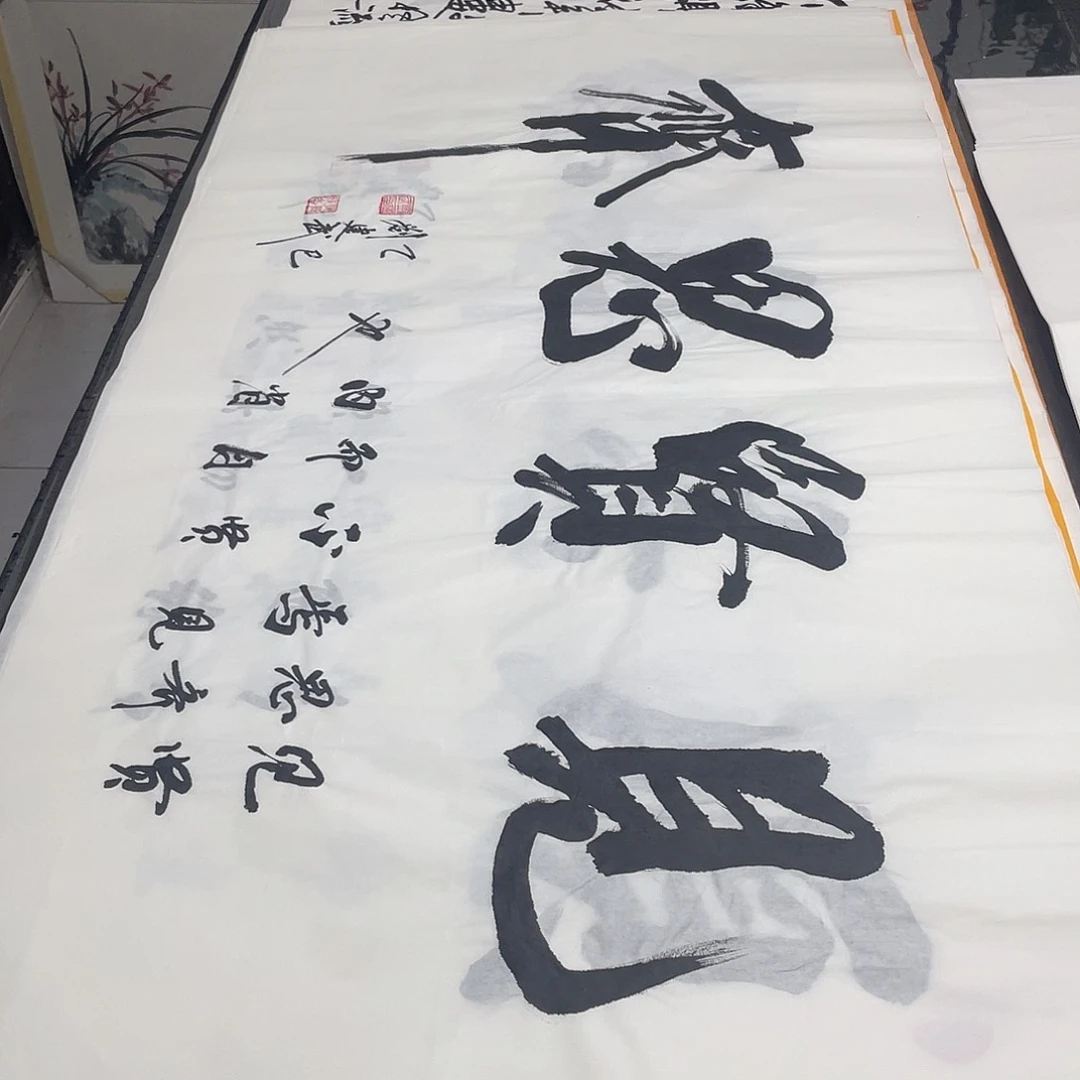 見賢思齊
見賢
思齊
焉見
不賢
而自
内省
也
乙巳
劉